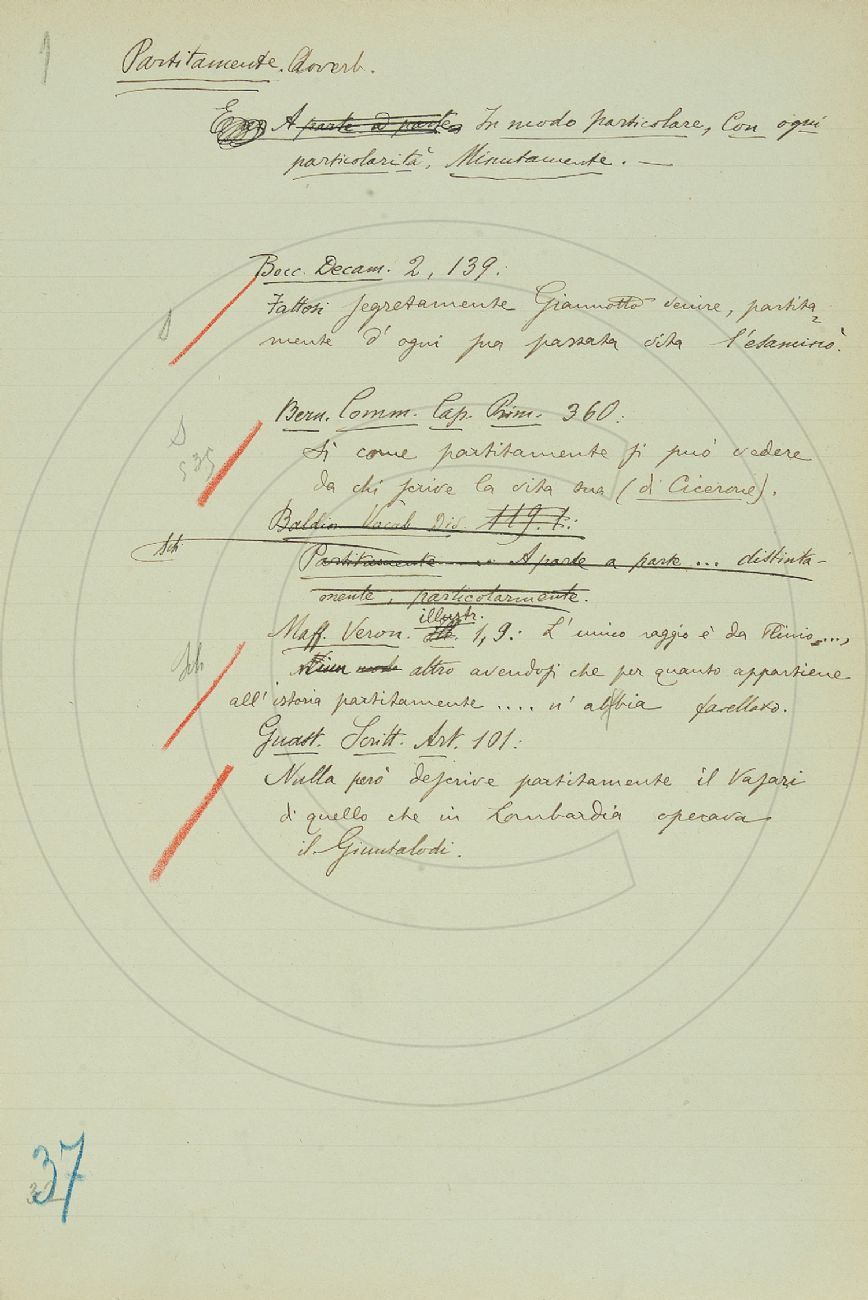 1
Partitamente. Adverb.
A parte a parte In modo particolare, Con ogni
particolarità, Minutamente. —
Bocc. Decam. 2, 139:
Fattosi segretamente Giannotto venire, partita=
mente d' ogni sua passata vita l'esaminò.
S
Bern. Comm. Cap. Prim. 360:
S
535
Sì come partitamente si può vedere
da chi scrive la vita sua (di Cicerone).
Baldin. Vocab. Dis. 119. 1.:
Sch
Partitamente A parte a parte ... distinta-
mente, particolarmente.
illustr.
Maff. Veron. 1, 9: L' unico raggio è da Plinio....,
Sch
altro avendosi che per quanto appartiene
all' istoria partitamente .... n' abbia favellato.
Guast. Scritt. Art. 101:
Nulla però descrive partitamente il Vasari
di quello che in Lombardia operava
il Giuntalodi.
37